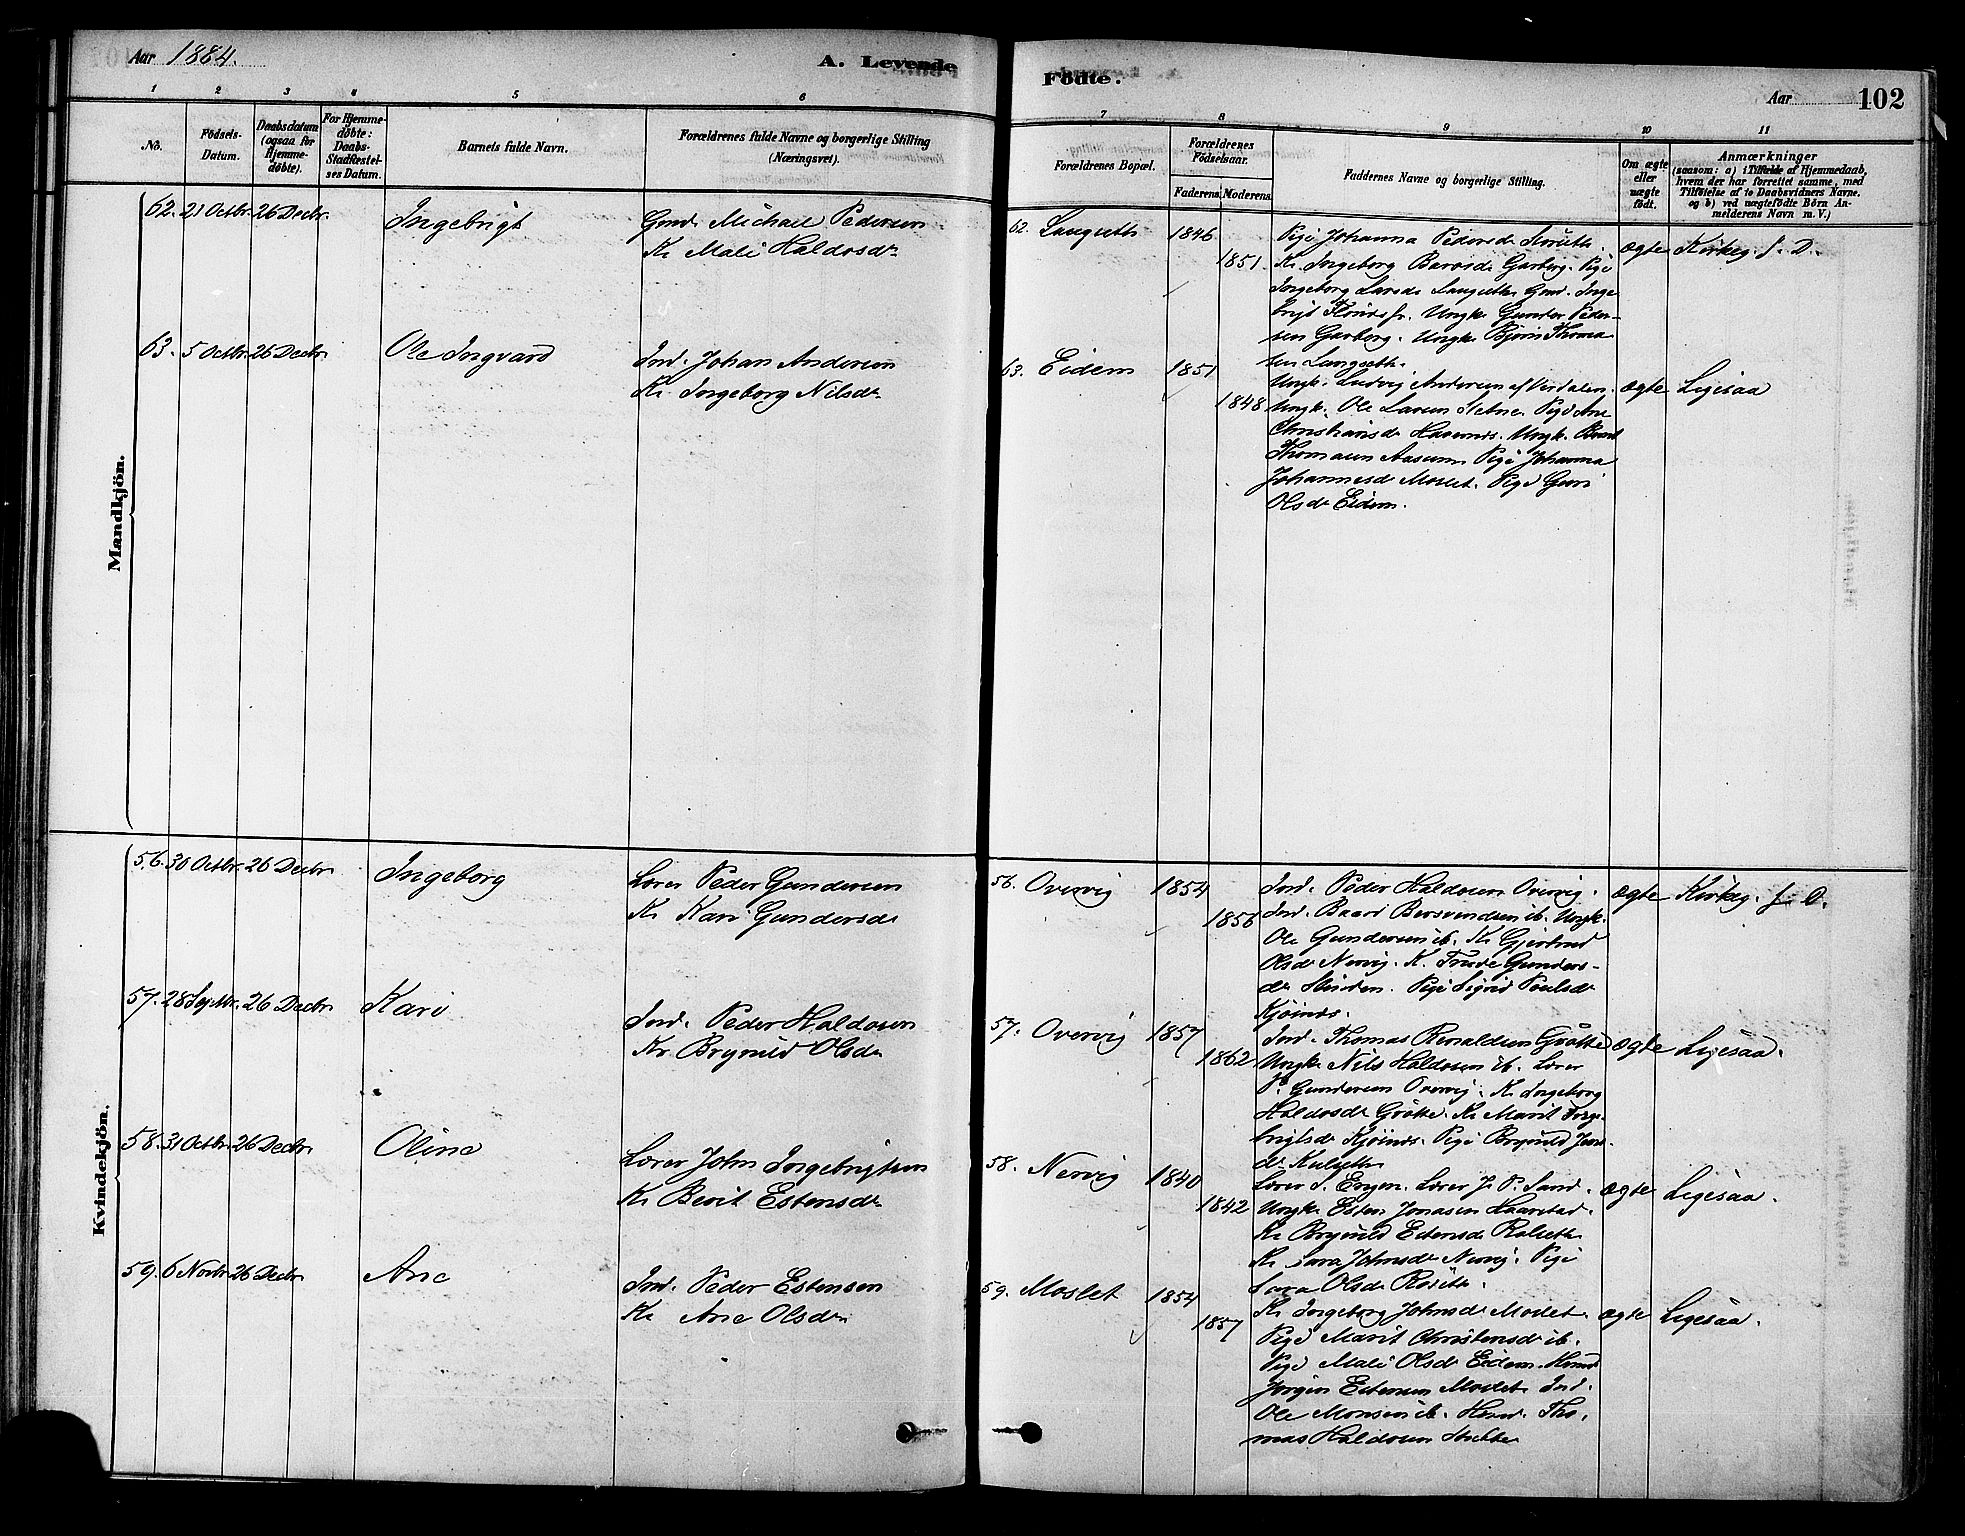 Aar 1884.
A. Levende
Födte.
Aar
102
1 2 3 4 5 6
7 8 9 10 11
No.
Födsels-
Datum.
Daabsdatum
(ogsaa for
Hjemme-
döbte).
For Hjemme-
döbte:
Daabs-
Stadfæstel-
ses Datum.
Barnets fulde Navn.
Forældrenes fulde Navne og borgerlige Stilling
(Næringsvei).
Forældrenes Bopæl.
Forældrenes
Födselsaar.
Faderens. Moderens.
Faddernes Navne og borgerlige Stilling.
Om ægte
eller
uægte
födt.
Anmærkninger
(saasom: a) i Tilfælde af Hjemmedaab,
hvem der har forrettet samme, med
Tilföielse af to Daabsvidners Navne,
og b) ved uægtefödte Börn An-
melderens Navn m. V.)
Mandkjön.
62. 21 Octbr. 26 Decbr.
Ingebrigt
Gmd. Michael Pedersen
K. Mali Haldosdr
62. Langseth
1846
1851
Pige Johanna Pedersd.
K. Ingeborg Baarsdr Garberg. Pige
Ingeborg Larsdr Langseth. Gmd. Inge
brigt. Ungk. Gunder Peder-
sen Garberg. Ungk. Björn Thoma
sen Langseth.
ægte
Kirkeg. s. D.
63. 5 Octbr. 26 Decbr.
Ole Ingvard
Ind. Johan Andersen
K. Ingeborg Nilsdr
63. Eidem
1851
1848
Ungk. Ludvig Andersen af Værdalen.
Ungk. Ole Larsen. Pige Ane
Christiansdr. Ungk. Bernt
Thomasen Aasum. Pige Johanna
Johannesdr Moslet. Pige Guri
Olsdr Eidem.
ægte
Ligesaa
Kvindekjön.
56. 30 Octbr. 26 Decbr.
Ingeborg
Lærer Peder Gundersen
K. Kari Gundersdr
56. Overvig
1854
1856
Ind. Peder Haldosen Overvig.
Ind. Baard Bersvendsen ib. Ungk.
Ole Gundersen ib. K. Gjertrud
Olsdr Nervig. K. Gunders-
dr. Pige Sigrid Poulsdr
Kjöinds.
ægte
Kirkeg. s. D.
57. 28 Septbr. 26 Decbr.
Kari
Ind. Peder Haldosen
K. Brynild Olsdr
57. Overvig
1857
1862
Ind. Thomas Renaldsen Grötte
Ungk. Nils Haldosen ib. Lærer
P. Gundersen Overvig. K. Ingeborg
Haldosdr Grötte. K. Marit Inge-
brigtsdr Kjöinds. Pige Brynild Jons-
dr Kulseth
ægte
Ligesaa.
58. 31 Octbr. 26 Decbr.
Oline
Lærer John Ingebrigtsen
K. Berit Estensdr
58. Nervig
1840
1842
Lærer S. Engen. Lærer J. P. Sand.
Ungk. Esten Jonasen Haarstad.
K. Brynild Estensdr Rolseth
K. Sara Johnsdr Nervig. Pige
Sara Olsdr Roseth.
ægte
Ligesaa.
59. 6 Novbr. 26 Decbr.
Ane
Ind. Peder Estensen
K. Ane Olsdr
59. Moslet
1854
1857
K. Ingeborg Johnsdr Moslet.
Pige Marit Christensdr ib.
Pige Mali Olsdr Eidem.
Jörgen Estensen Moslet. Ind.
Ole Monsen ib. Tho-
mas Haldosen
ægte
Ligesaa.